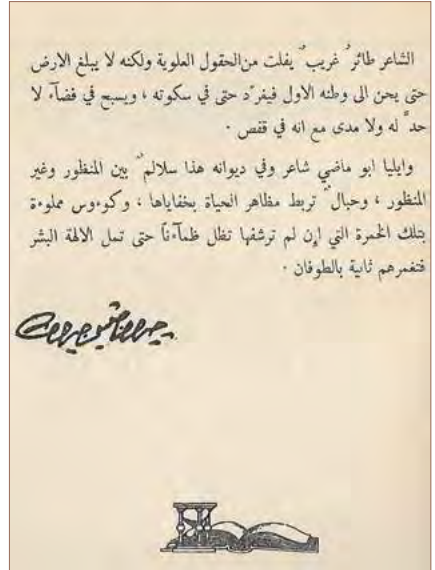 الشاعر طائرٌ غريبٌ يفلت من الحقول العلوية ولكنه لا يبلغ الارض
حتى يحن الى وطنه الاول فيغرّد حتى في سكوته ، ويسبح في فضآء لا
حدّ له ولا مدى مع انه في قفص ٠
وايليا ابو ماضي شاعر وفي ديوانه هذا سلالمٌ بين المنظور وغير
المنظور ، وحبالٌ تربط مظاهر الحياة بخفاياها ، وكوءوس مملوءة
بتلك الخمرة التي إن لم ترشفها تظل ظمآءناً حتى تمل الالهة البشر
فتغمرهم ثانية بالطوفان ٠